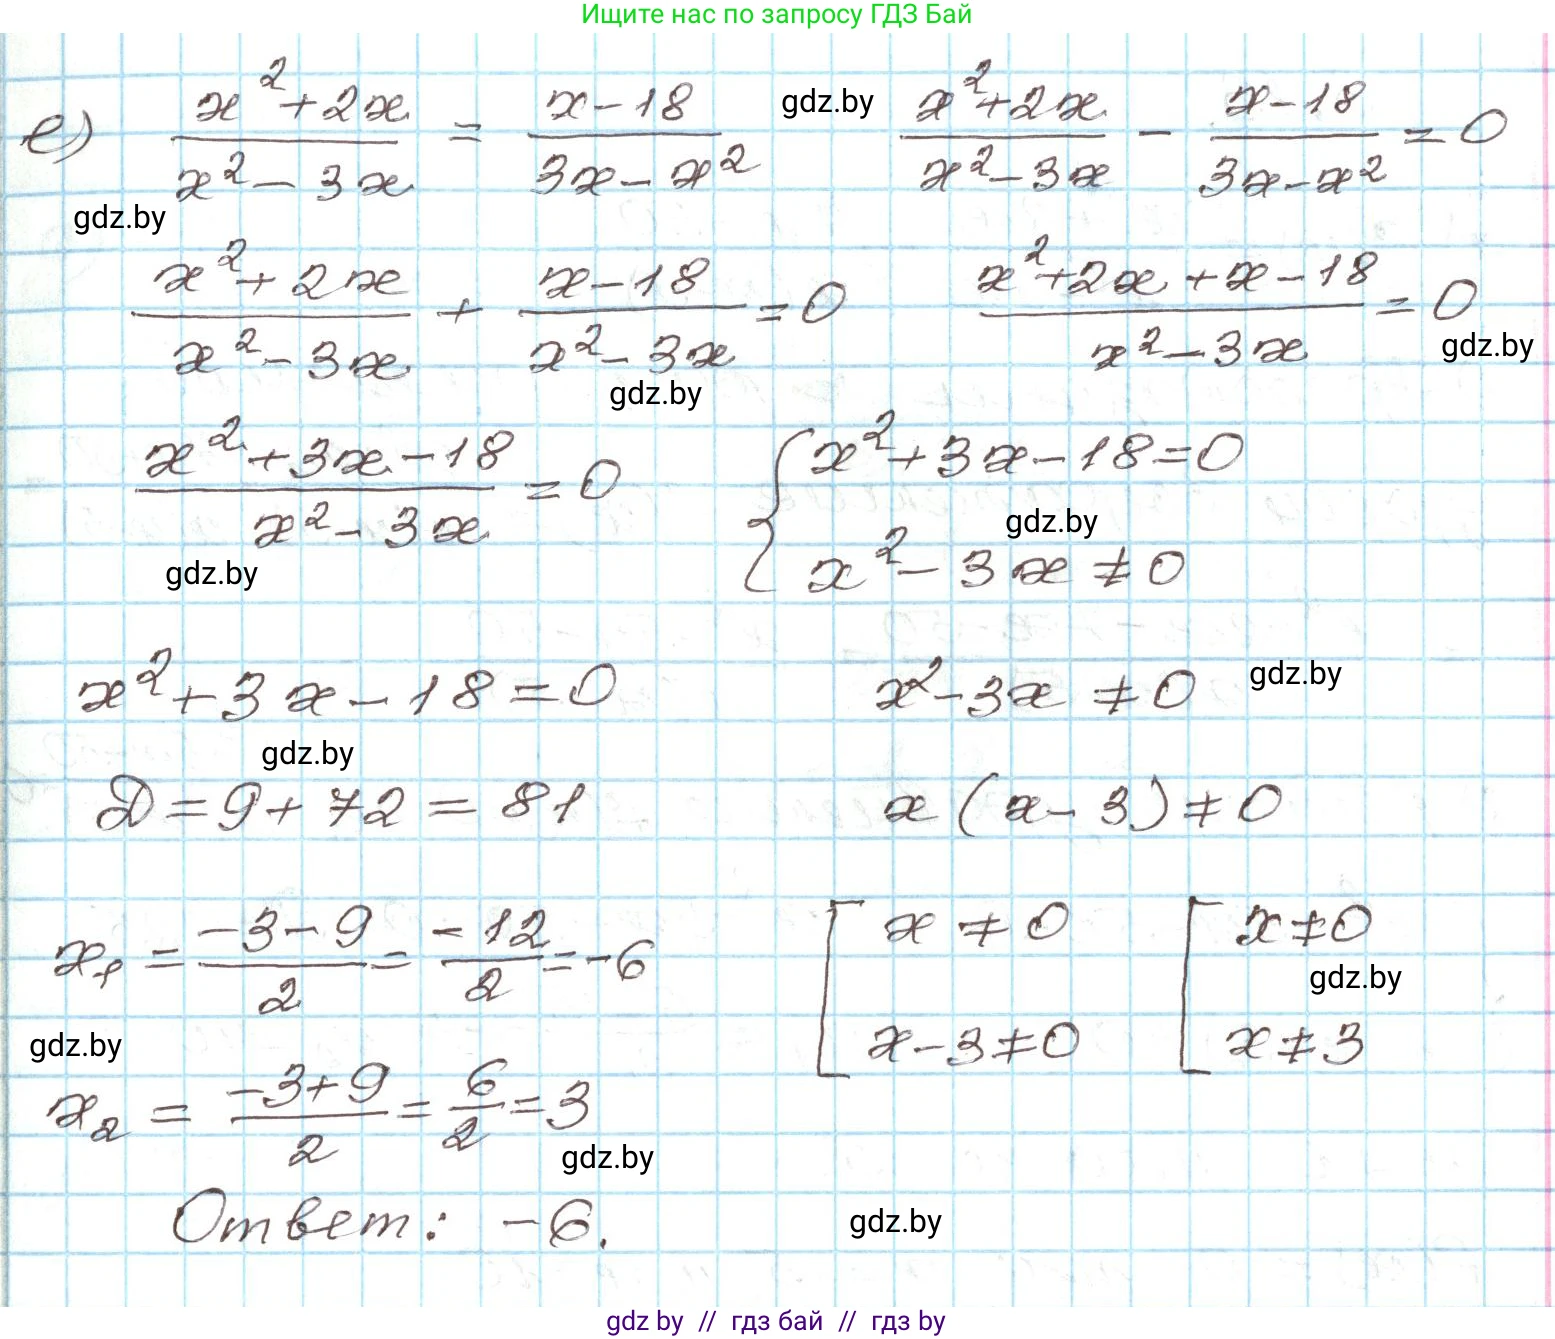 Ищите нас по запросу ГДЗ Бай
е) (x² + 2x)/(x² - 3x) = (x - 18)/(3x - x²) gdz.by (x² + 2x)/(x² - 3x) - (x - 18)/(3x - x²) = 0
gdz.by
(x² + 2x)/(x² - 3x) + (x - 18)/(x² - 3x) = 0 (x² + 2x + x - 18)/(x² - 3x) = 0
gdz.by
gdz.by
(x² + 3x - 18)/(x² - 3x) = 0 { x² + 3x - 18 = 0
gdz.by
x² - 3x ≠ 0
gdz.by
x² + 3x - 18 = 0 x² - 3x ≠ 0 gdz.by
gdz.by
Д = 9 + 72 = 81 x(x - 3) ≠ 0
x₁ = (-3 - 9)/2 = (-12)/2 = -6 [ x ≠ 0 [ x ≠ 0
gdz.by
gdz.by x - 3 ≠ 0 x ≠ 3
x₂ = (-3 + 9)/2 = 6/2 = 3
gdz.by
Ответ: -6. gdz.by
gdz by // гдз бай // гдз by